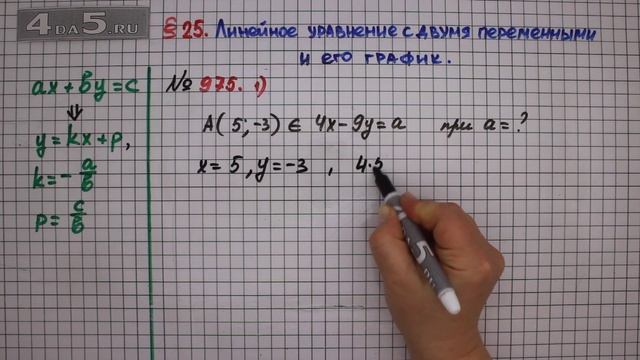 4DA5.RU
§ 25. Линейное уравнение с двумя переменными
и его график.
ax + by = c
⇓
y = kx + p,
k = - a/b
p = c/b
№ 975. 1)
A( 5; -3) ∈ 4x - 9y = a при a = ?
x = 5, y = -3 , 4·5